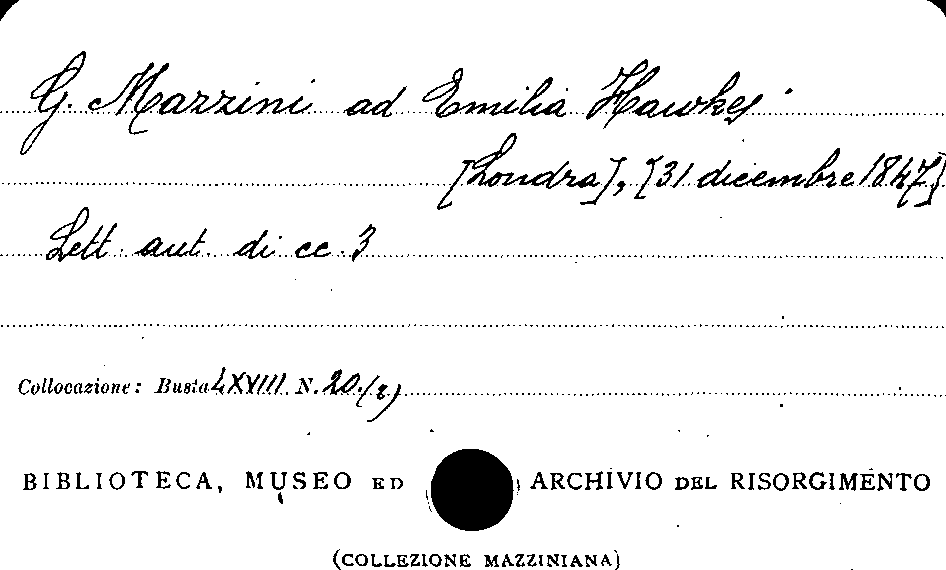 G. Mazzini ad Emilia Hawkes
[Londra], [31 dicembre 1847]
Lett. aut. di cc. 3
Collocazione: Busta LXVIII N. 20.(2)
BIBLIOTECA, MUSEO ED ARCHIVIO DEL RISORGIMENTO
(COLLEZIONE MAZZINIANA)